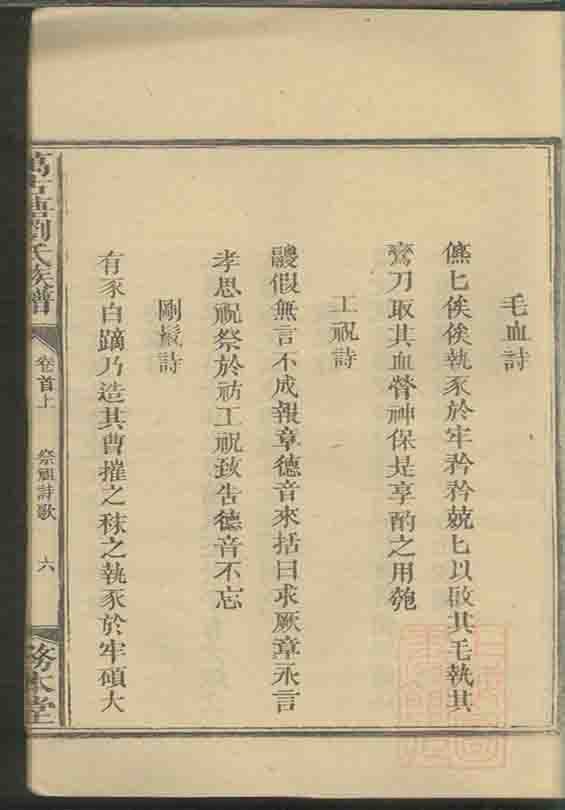 毛血詩
儦匕俟俟執豕於牢矜矜兢匕以啟其毛執其
鸞刀取其血膋神保是享酌之用匏
工祝詩
鬷假無言不成報章德音來括曰求厥章永言
孝思祝祭於祊工祝致告德音不忘
剛鬣詩
有豕白蹢乃造其曹摧之秣之執豕於牢碩大
萬古塘劉氏族譜
卷首上
祭祖詩歌
六
務本堂